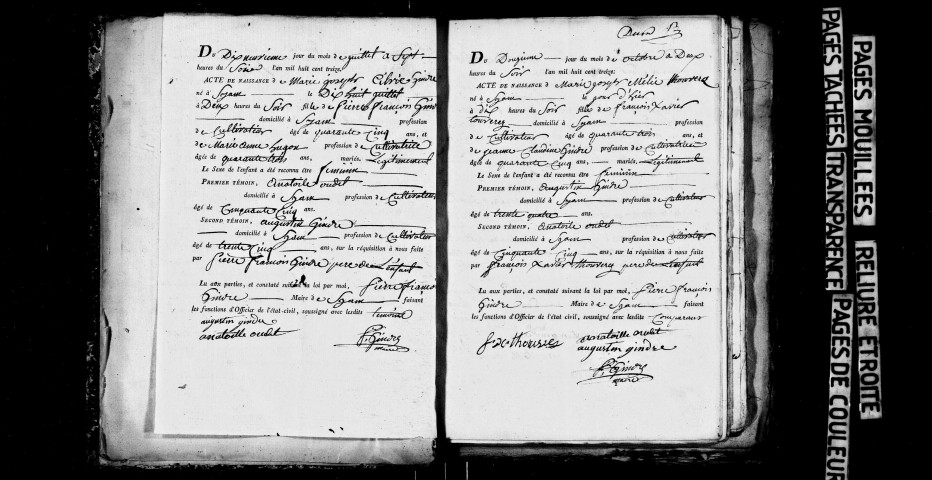 Du Dix neuvieme jour du mois de juillet a Sept
heures du Soir l'an mil huit cent treize.
ACTE DE NAISSANCE de Marie joseph Gindre
né à Syam le Dix huit juillet
à Deux heures du Soir fille de pierre françois Gindre
domicilié à Syam profession
de Cultivateur âgé de quarante Cinq ans, et
de Marie anne profession de Cultivatrice
âgée de quarante trois ans, mariés. Légitimement
Le Sexe de l'enfant a été reconnu être feminin
PREMIER TÉMOIN, anatoile oudet
domicilié à Syam profession de Cultivateur
âgé de Cinquante Cinq ans.
SECOND TÉMOIN, augustin Gindre
domicilié à Syam profession de Cultivateur
âgé de trente Cinq ans, sur la réquisition à nous faite
par pierre françois Gindre pere de L'enfant
Lu aux parties, et constaté suivant la loi par moi, pierre françois
Gindre Maire de Syam faisant
les fonctions d'Officier de l'état-civil, soussigné avec lesdits temoins
augustin gindre
anatoille oudet
Gindre
maire
Du Onzieme jour du mois de octobre a Deux
heures du Soir l'an mil huit cent treize.
ACTE DE NAISSANCE de Marie joseph Mélie thouverez
né à Syam le jour d'hier
à dix heures du Soir fille de françois Xavier
touverez domicilié à Syam profession
de Cultivateur âgé de quarante trois ans, et
de jeanne Claudine Gindre profession de Cultivatrice
âgée de quarante Cinq ans, mariés. Légitimement
Le Sexe de l'enfant a été reconnu être feminin
PREMIER TÉMOIN, augustin Gindre
domicilié à Syam profession de Cultivateur
âgé de trente quatre ans.
SECOND TÉMOIN, anatoile oudet
domicilié à Syam profession de Cultivateur
âgé de Cinquante Cinq ans, sur la réquisition à nous faite
par françois Xavier thouverez pere de L'enfant
Lu aux parties, et constaté suivant la loi par moi, pierre françois
Gindre Maire de Syam faisant
les fonctions d'Officier de l'état-civil, soussigné avec lesdits Comparant
anatoille oudet
augustin gindre
Gindre
maire
PAGES MOUILLEES RELIURE ETROITE
PAGES TACHEES TRANSPARENCE PAGES DE COULEUR